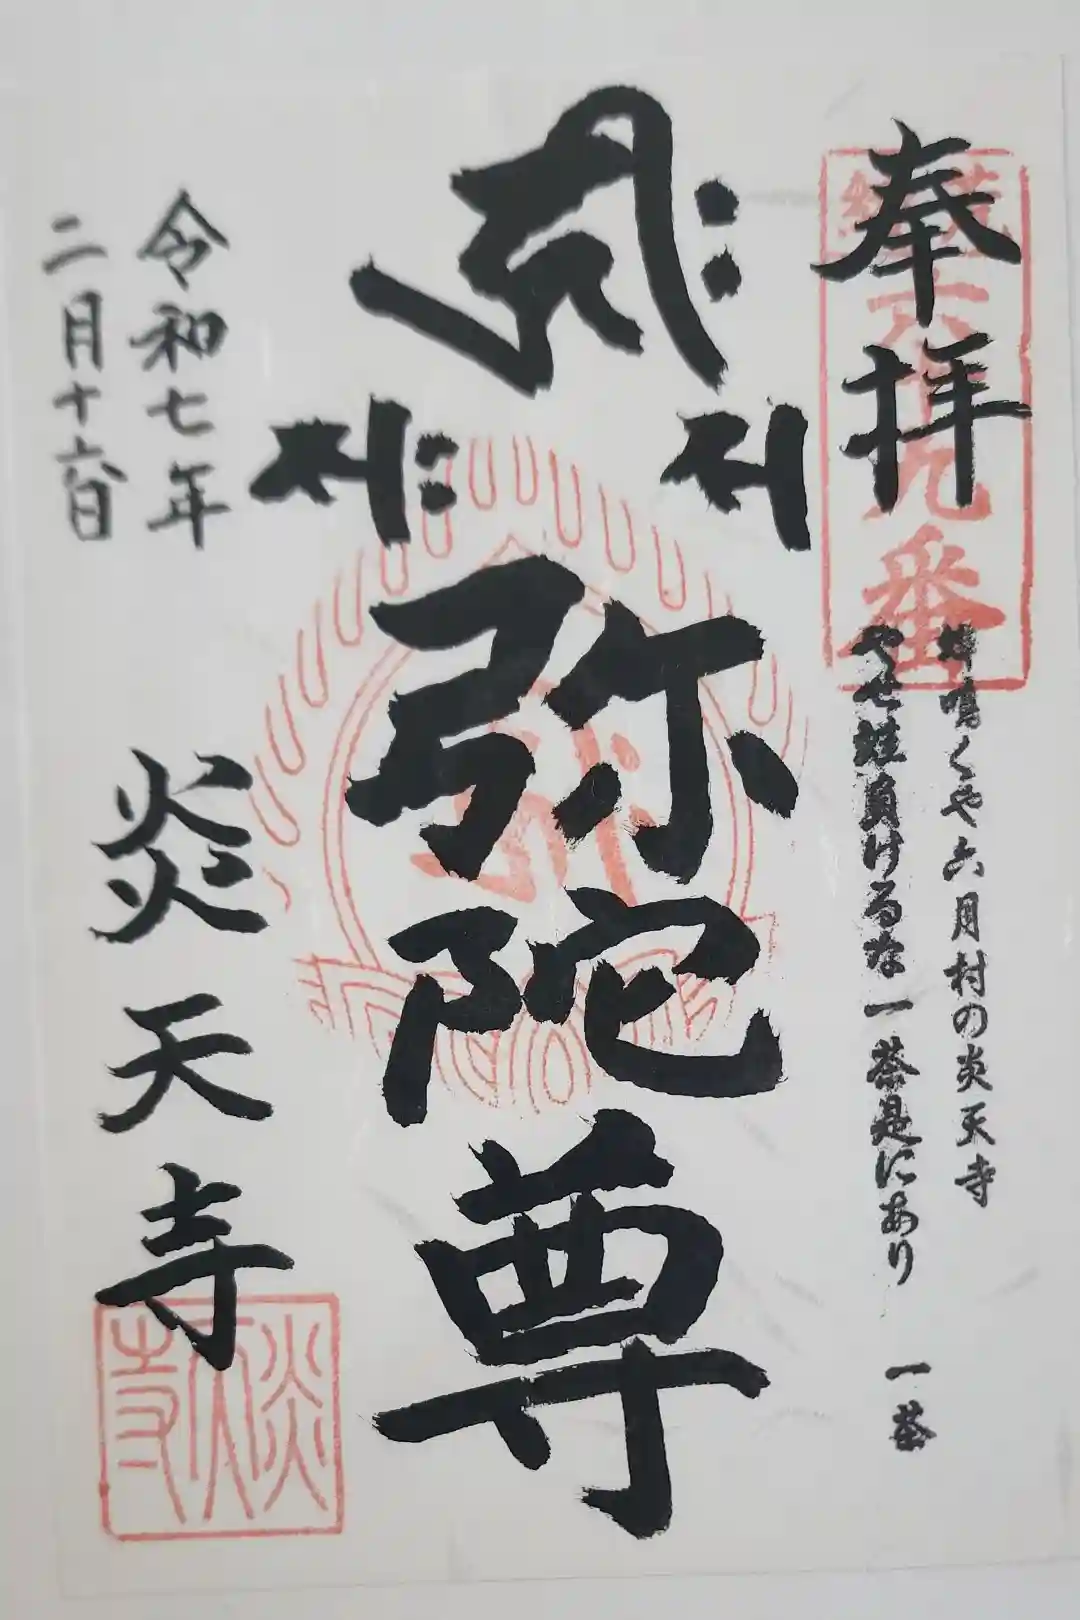 奉拝
六十九番
蝉鳴くや六月村の炎天寺
やせ蛙負けるな一茶是にあり
一茶
弥陀尊
令和七年
二月十六日
炎天寺
炎天寺